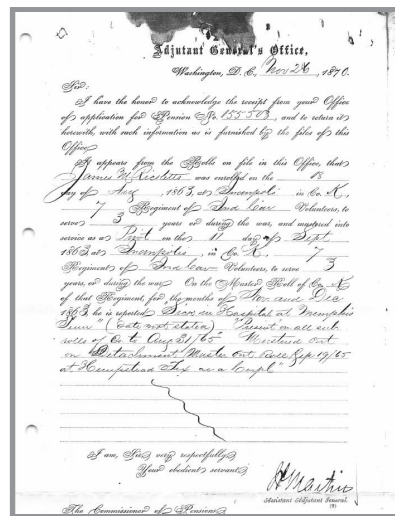 Adjutant General's Office,
Washington, D. C., Nov 26, 1870.
Sir:
I have the honor to acknowledge the receipt from your Office
of application for Pension No. 155503, and to return it
herewith, with such information as is furnished by the files of this
Office.
It appears from the Rolls on file in this Office, that
James M. was enrolled on the 18
day of Aug, 1863, at in Co. K,
7 Regiment of Ind Cav Volunteers, to
serve 3 years or during the war, and mustered into
service as a Privt on the 11 day of Sept,
1863, at, in Co. K, 7
Regiment of Ind Cav Volunteers, to serve 3
years, or during the war. On the Muster Roll of Co. K
of that Regiment, for the months of Nov and Dec
1863, he is reported Sick in Hospital at Memphis
Tenn" (date not stated). "Present on all sub
rolls of Co to Aug 31/65 Mustered out
on "Detachment Muster Out Roll Sep 19/65
at Hempstead Tex as a Corpl"
I am, Sir, very respectfully,
Your obedient servant,
Martin
Assistant Adjutant General.
The Commissioner of Pensions